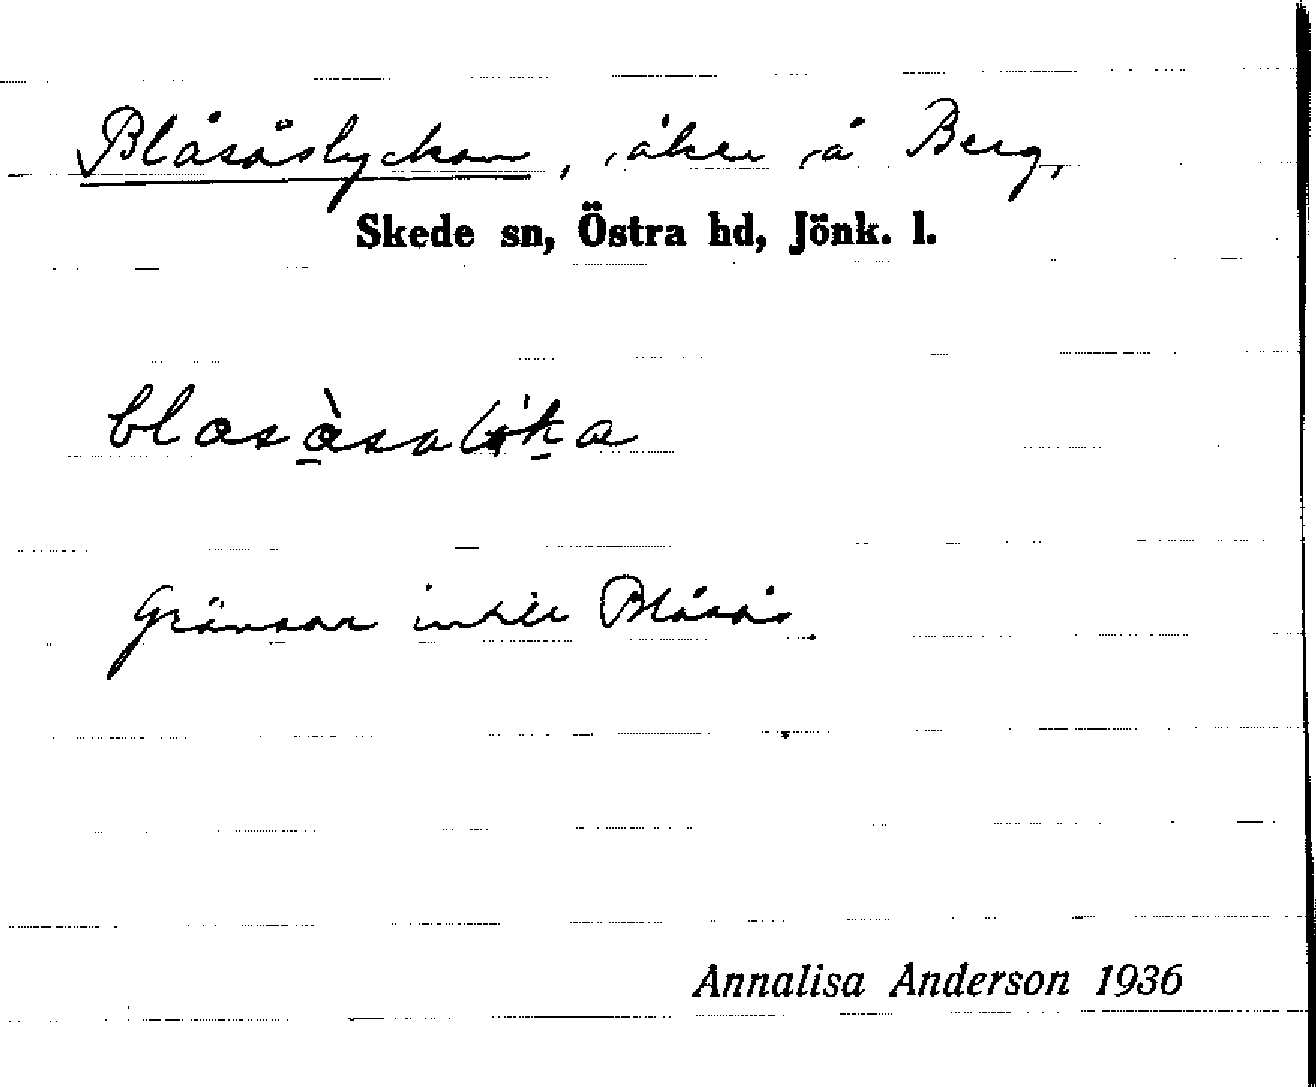 Blåsåslyckan, åker å Berg,
Skede sn, Östra hd, Jönk. l.
Gränsar intill Blåsås.
Annalisa Anderson 1936